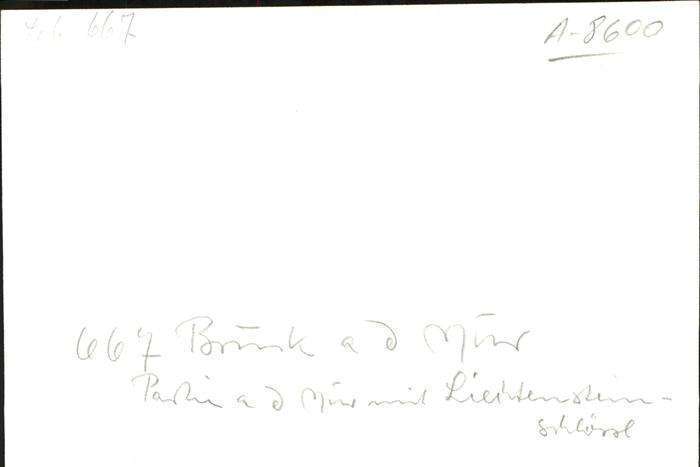 667
A-8600
667 Bruck a d Mur
Partie a d Mur mit Liechtenstein-
schlössl